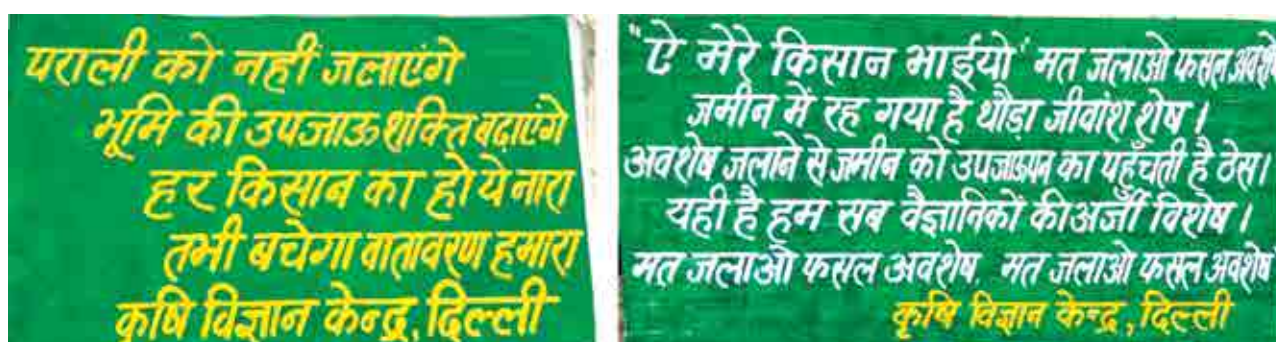 पराली को नहीं जलाएंगे
भूमि की उपजाऊ शक्ति बढ़ाएंगे
हर किसान का हो ये नारा
तभी बचेगा वातावरण हमारा
कृषि विज्ञान केन्द्र, दिल्ली
"ऐ मेरे किसान भाईयो" मत जलाओ फसल अवशेष
जमीन में रह गया है थौड़ा जीवांश शेष।
अवशेष जलाने से जमीन को उपजाऊपन का पहुँचती है ठेस।
यही है हम सब वैज्ञानिकों की अर्जी विशेष।
मत जलाओ फसल अवशेष, मत जलाओ फसल अवशेष
कृषि विज्ञान केन्द्र, दिल्ली